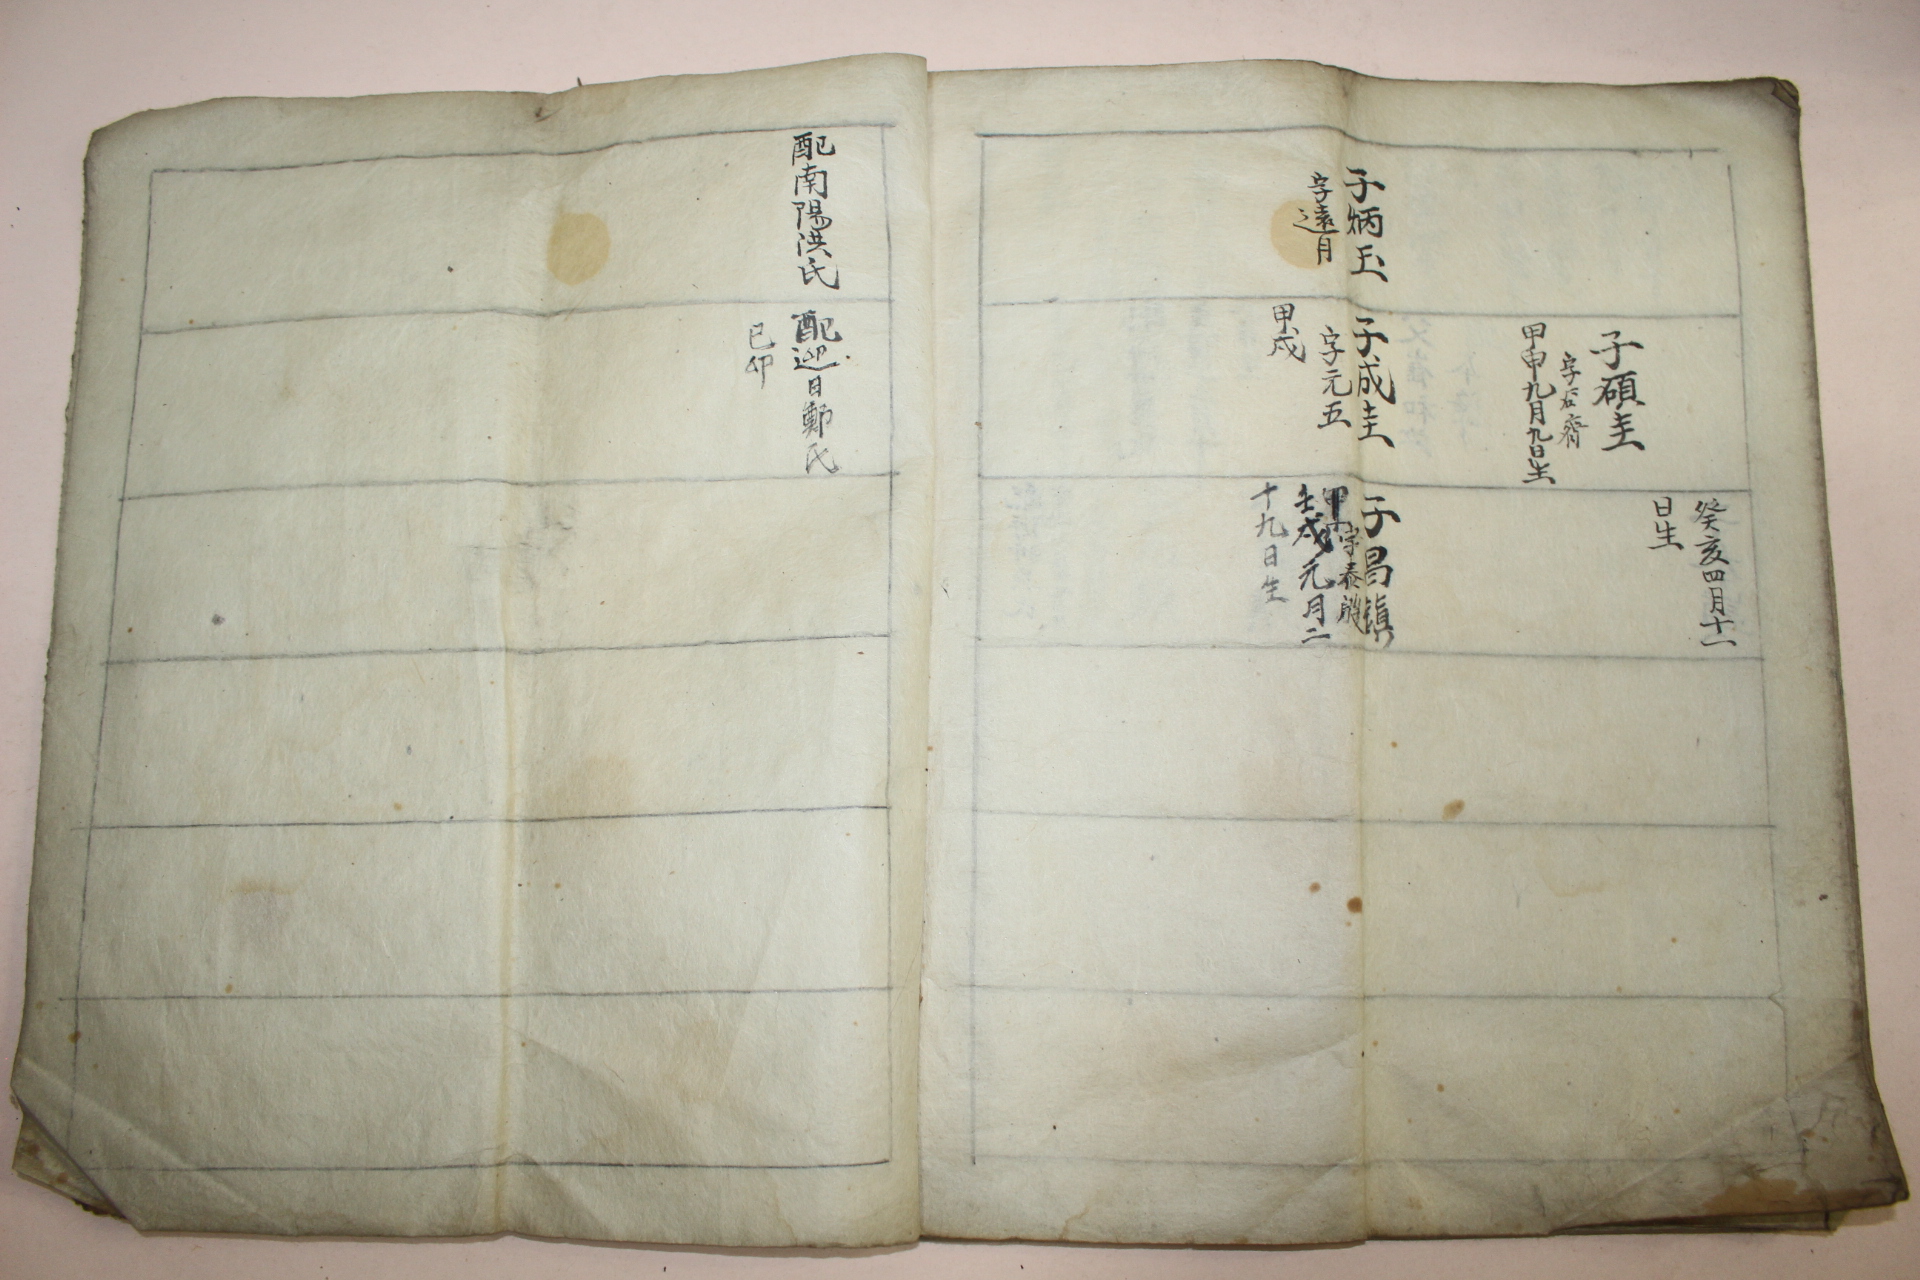 子炳玉
字遠月
子碩圭
字石齋
甲申九月九日生
子成圭
字元五
甲戌
癸亥四月十一
日生
子昌鎭
字泰
壬戌元月二
十九日生
配南陽洪氏
配迎日鄭氏
己卯